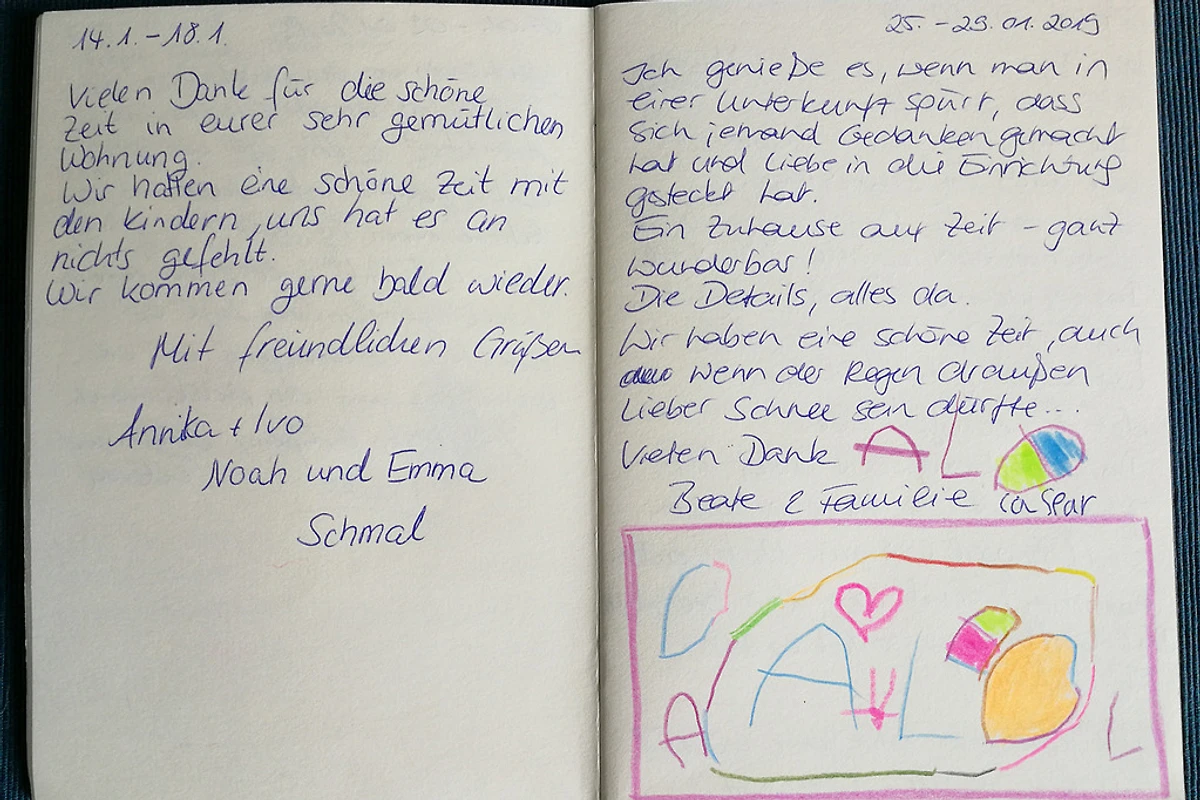 14.1. - 18.1.
Vielen Dank für die schöne
Zeit in eurer sehr gemütlichen
Wohnung.
Wir hatten eine schöne Zeit mit
den Kindern, uns hat es an
nichts gefehlt.
Wir kommen gerne bald wieder.
Mit freundlichen Grüßen
Annika + Ivo
Noah und Emma
Schmal
25. - 29.01.2019
Ich genieße es, wenn man in
einer Unterkunft spürt, dass
sich jemand Gedanken gemacht
hat und Liebe in die Einrichtung
gesteckt hat.
Ein Zuhause auf Zeit - ganz
wunderbar!
Die Details, alles da.
Wir haben eine schöne Zeit, auch
wenn der Regen draußen
lieber Schnee sein dürfte...
Vielen Dank A L
Beate & Familie Caspar
A L
A L